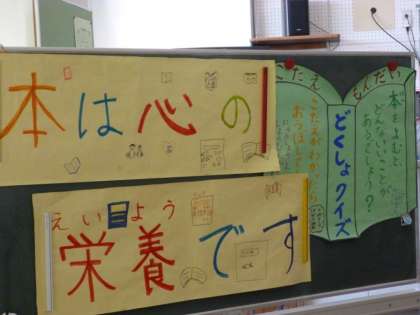 本は心の
えいよう
栄養です
もんだい
本をよむと、
どんないいことが
あるでしょう？
どくしょクイズ
こたえ
こたえがわかったら